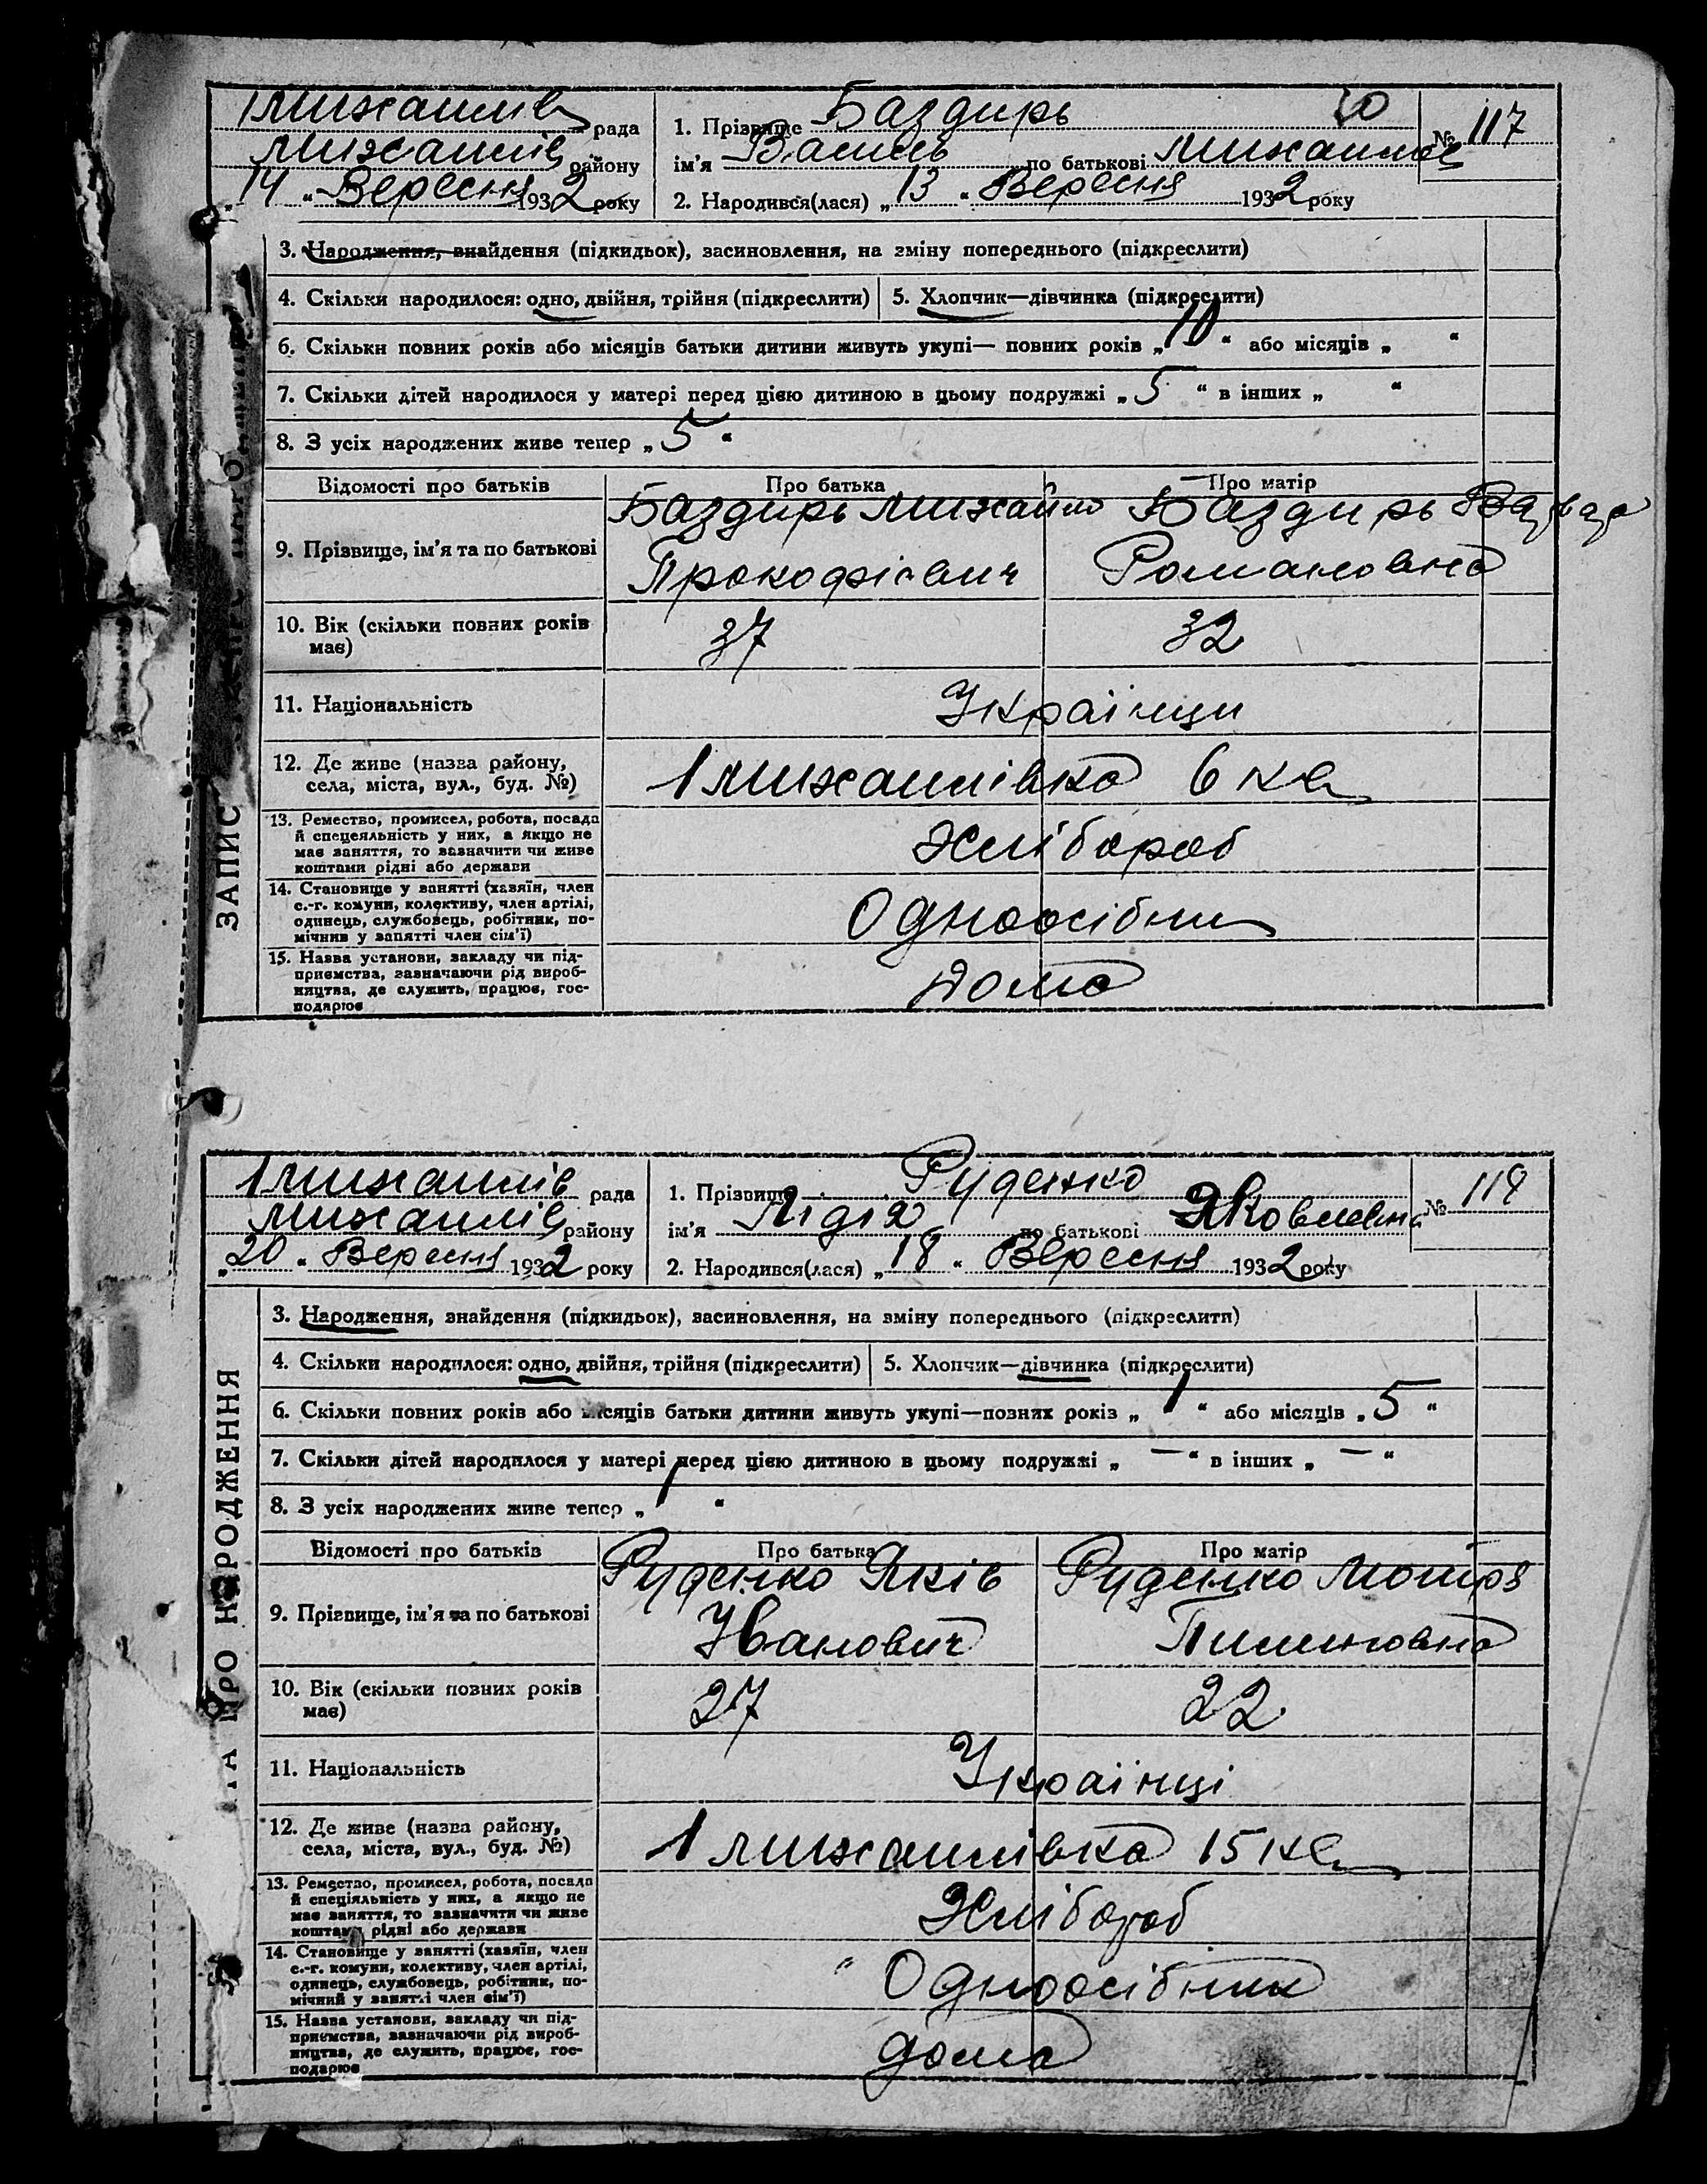 1 Михайлів рада
Михайлів району
„14“ Вересня 1932 року
1. Прізвище Баздирь 30
ім'я Василь по батькові Михайлов
№ 117
2. Народився(лася) „13“ Вересня 1932 року
3. Народження, знайдення (підкидьок), засиновлення, на зміну попереднього (підкреслити)
4. Скільки народилося: одно, двійня, трійня (підкреслити)
5. Хлопчик—дівчинка (підкреслити)
6. Скільки повних років або місяців батьки дитини живуть укупі— повних років „10“ або місяців „ “
7. Скільки дітей народилося у матері перед цією дитиною в цьому подружжі „5“ в інших „ “
8. З усіх народжених живе тепер „5“
Відомості про батьків Про батька Про матір
9. Прізвище, ім'я та по батькові
Баздирь Михайло Баздирь Варвара
Прокофієвич Романовна
10. Вік (скільки повних років
має)
37 32
11. Національність Українци
12. Де живе (назва району,
села, міста, вул., буд. №)
1 Михайлівка 6 кв
13. Ремество, промисел, робота, посада
й спецеяльність у них, а якщо не
має заняття, то зазначити чи живе
коштами рідні або держави
Хлібороб
14. Становище у занятті (хазяїн, член
с.-г. комуни, колективу, член артілі,
одинець, службовець, робітник, по-
мічнив у запятті член сім'ї)
Одноосібник
15. Назва установи, закладу чи під-
приємства, зазначаючи рід вироб-
ництва, де служить, працює, гос-
подарює
дома
ЗАПИС
1 Михайлів рада
Михайлів району
„20“ Вересня 1932 року
1. Прізвище Руденко
ім'я Лідія по батькові Яковлевна
№ 118
2. Народився(лася) „18“ Вересня 1932 року
3. Народження, знайдення (підкидьок), засиновлення, на зміну попереднього (підкреслити)
4. Скільки народилося: одно, двійня, трійня (підкреслити)
5. Хлопчик—дівчинка (підкреслити)
6. Скільки повних років або місяців батьки дитини живуть укупі—повних років „1“ або місяців „5“
7. Скільки дітей народилося у матері перед цією дитиною в цьому подружжі „—“ в інших „—“
8. З усіх народжених живе тепер „1“
Відомості про батьків Про батька Про матір
9. Прізвище, ім'я та по батькові
Руденко Яків Руденко Мотря
Иванович Пименовна
10. Вік (скільки повних років
має)
27 22
11. Національність Українці
12. Де живе (назва району,
села, міста, вул., буд. №)
1 Михайлівка 15 кв
13. Ремество, промисел, робота, посада
й спеціяльність у них, а якщо не
має заняття, то зазначити чи живе
коштами рідні або держави
Хлібороб
14. Становище у занятті (хазяїн, член
с.-г. комуни, колективу, член артілі,
одинець, службовець, робітник, по-
мічний у занятті член сім'ї)
Одноосібник
15. Назва установи, закладу чи під-
приємства, зазначаючи рід вироб-
ництва, де служить, працює, гос-
подарює
дома
ПРО НАРОДЖЕННЯ